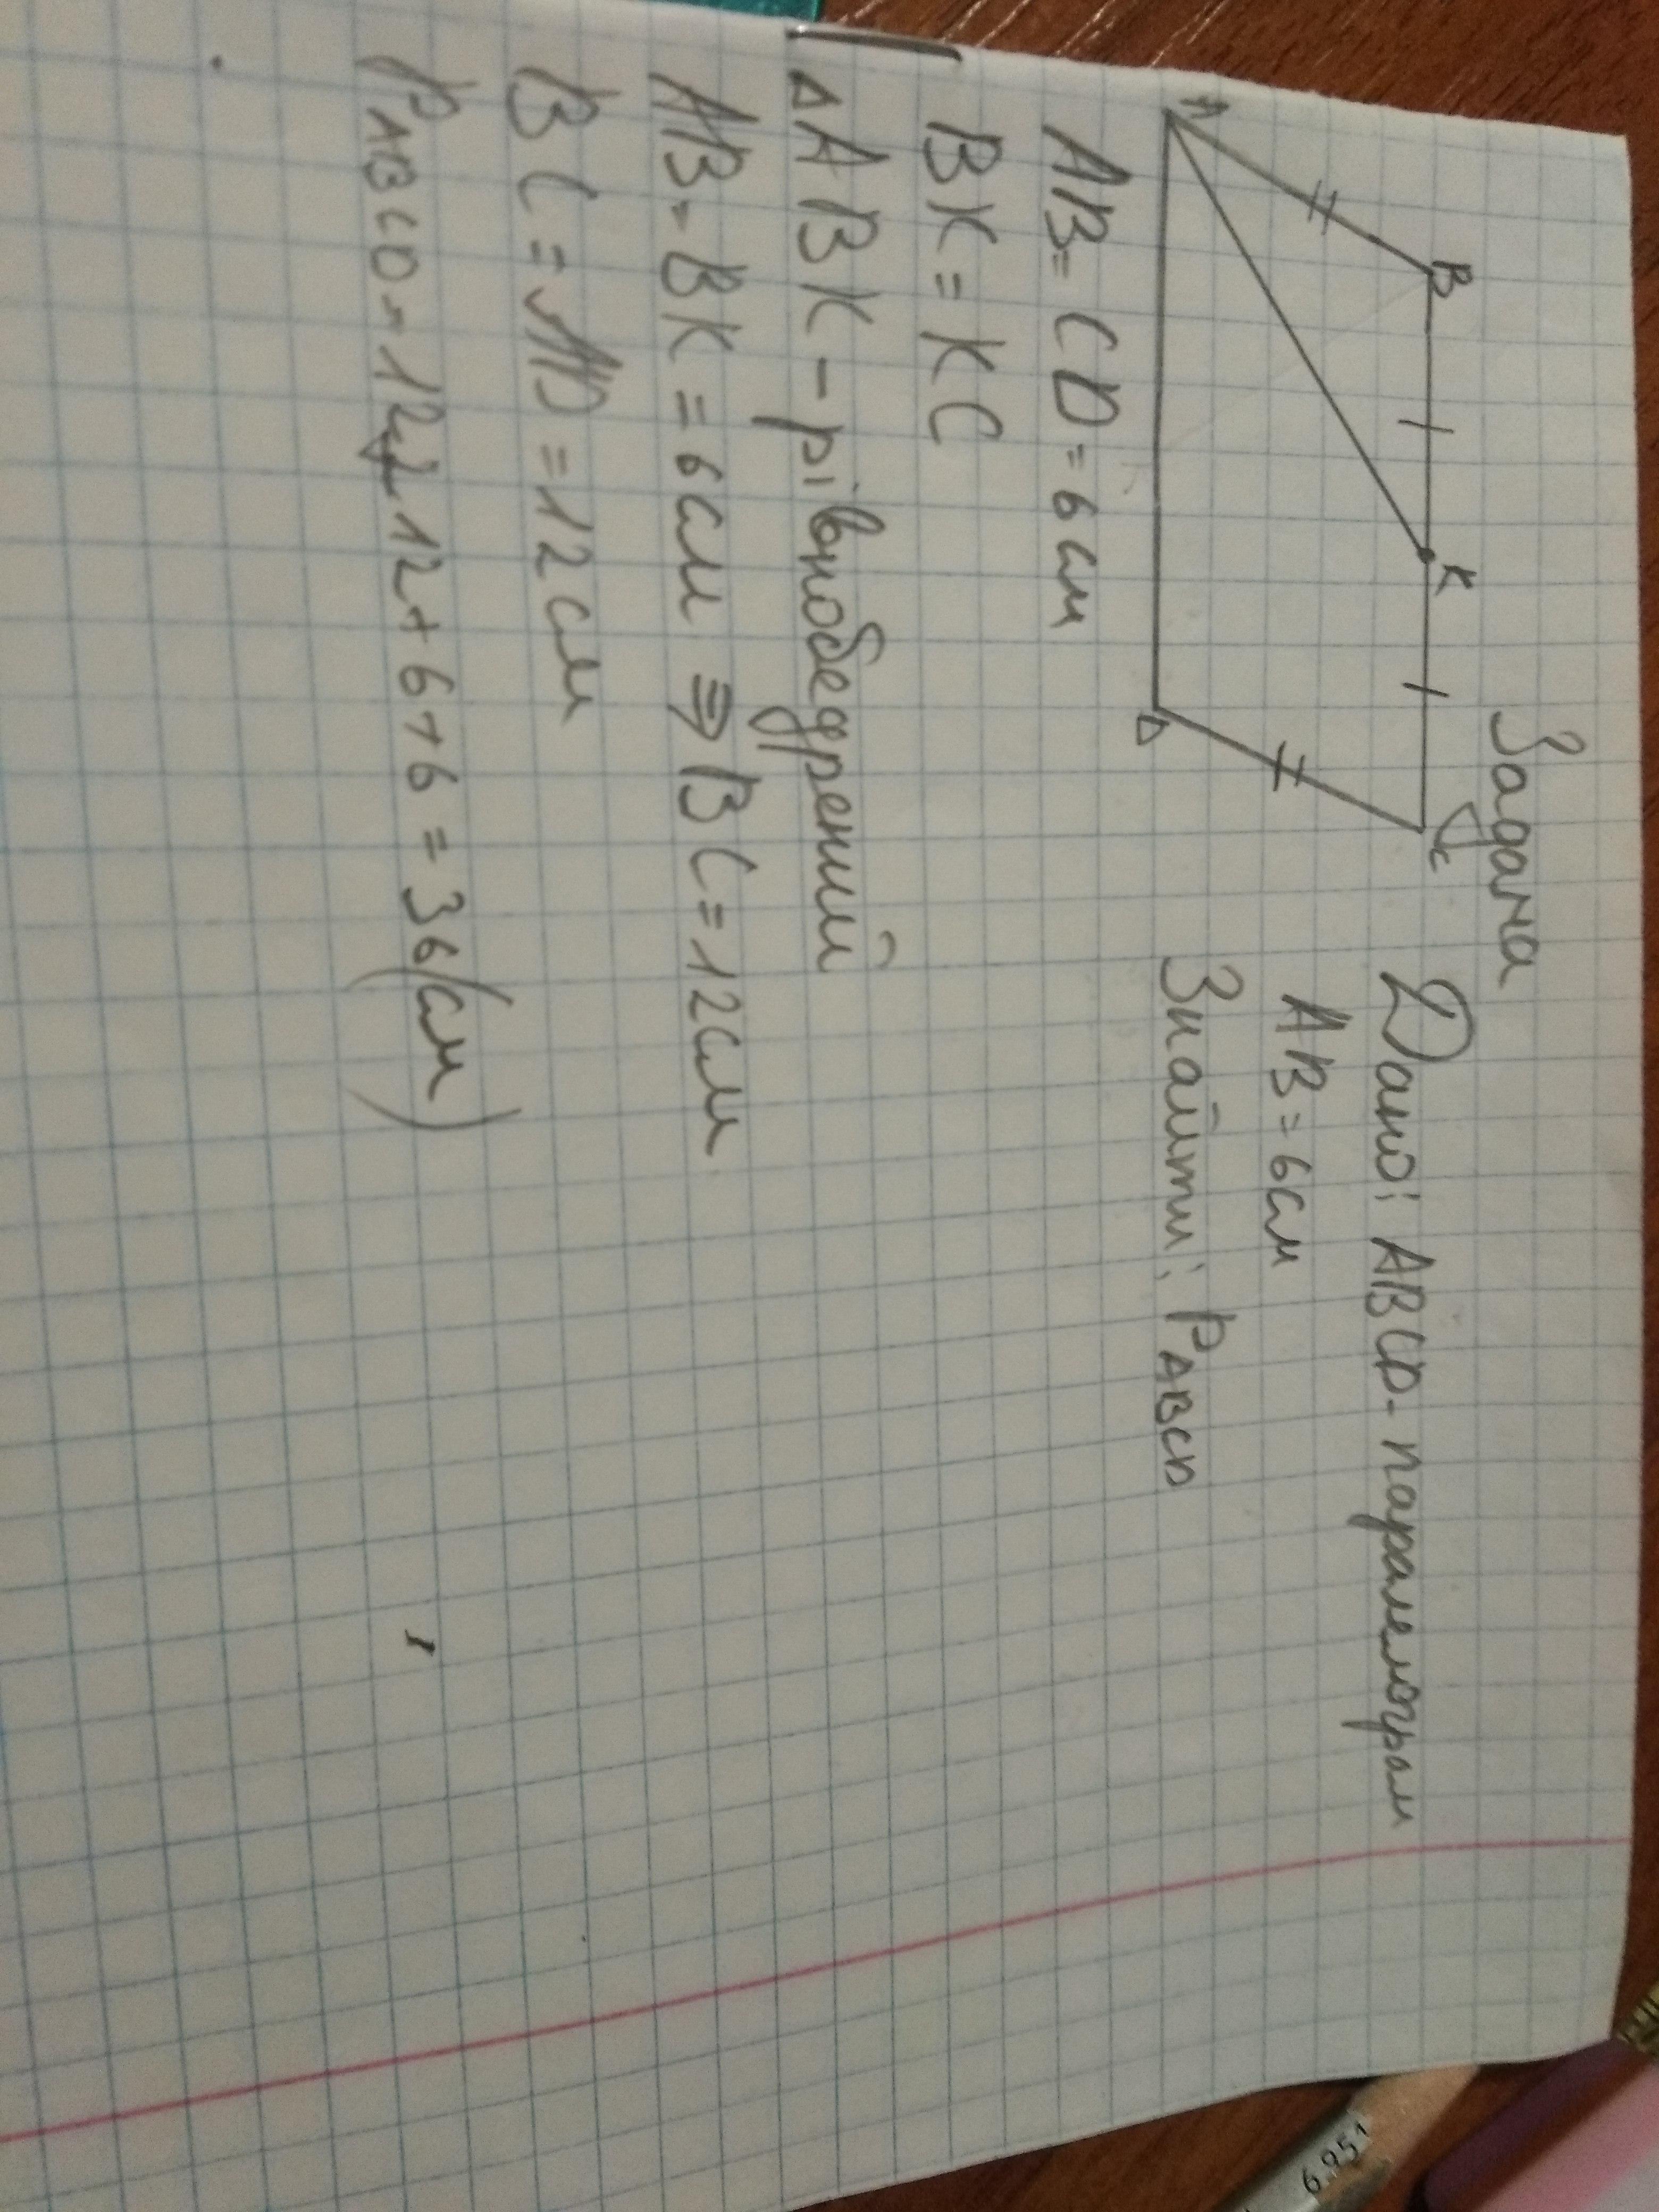 Задача
B K C
A D
Дано: ABCD - паралелограм
AB = 6 см
Знайти: PABCD
AB = CD = 6 см
BK = KC
△ABK - рівнобедрений
AB = BK = 6 см ⇒ BC = 12 см
BC = AD = 12 см
PABCD = 12 + 12 + 6 + 6 = 36 (см)
6.951